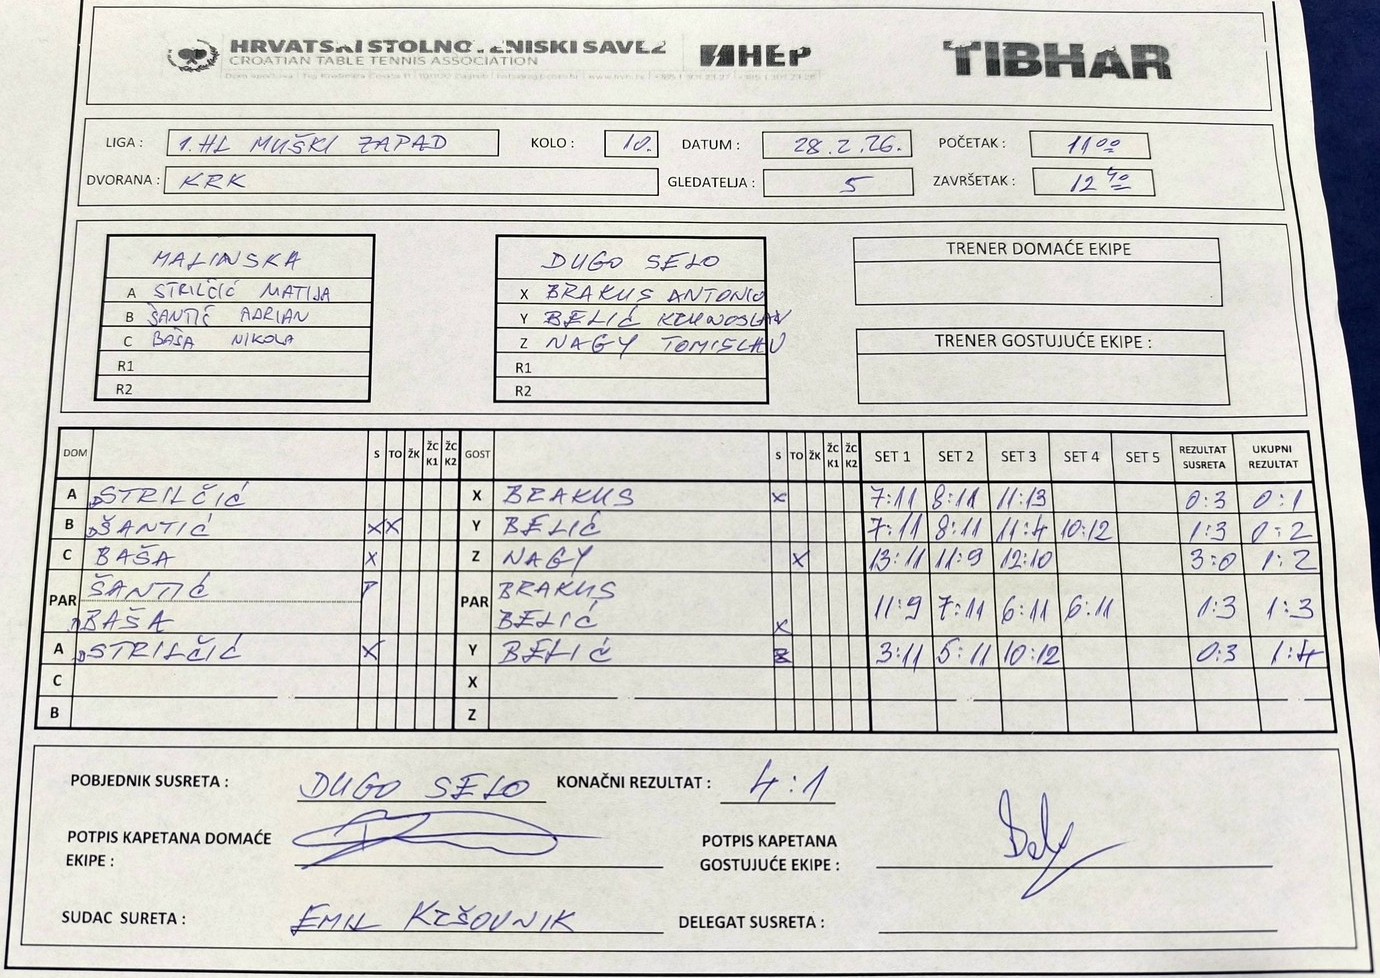 HRVATSKI STOLNOTENISKI SAVEZ
CROATIAN TABLE TENNIS ASSOCIATION
HEP
TIBHAR
LIGA : 1. HL MUŠKI ZAPAD KOLO : 10. DATUM : 28.2.26. POČETAK : 11 00
DVORANA : KRK GLEDATELJA : 5 ZAVRŠETAK : 12 40
MALINSKA DUGO SELO TRENER DOMAĆE EKIPE
A STRILČIĆ MATIJA X BRAKUS ANTONIO
B ŠANTIĆ ADRIAN Y BELIĆ KRUNOSLAV
C BAŠA NIKOLA Z NAGY TOMISLAV TRENER GOSTUJUĆE EKIPE :
R1 R1
R2 R2
DOM S TO ŽK ŽC K1 ŽC K2 GOST S TO ŽK ŽC K1 ŽC K2 SET 1 SET 2 SET 3 SET 4 SET 5 REZULTAT SUSRETA UKUPNI REZULTAT
A STRILČIĆ X BRAKUS X 7:11 8:11 11:13 0:3 0:1
B ŠANTIĆ X X Y BELIĆ 7:11 8:11 11:4 10:12 1:3 0:2
C BAŠA X Z NAGY X 13:11 11:9 12:10 3:0 1:2
PAR ŠANTIĆ P PAR BRAKUS 11:9 7:11 6:11 6:11 1:3 1:3
BAŠA BELIĆ X
A STRILČIĆ X Y BELIĆ 3:11 5:11 10:12 0:3 1:4
C X
B Z
POBJEDNIK SUSRETA : DUGO SELO KONAČNI REZULTAT : 4:1
POTPIS KAPETANA DOMAĆE EKIPE : POTPIS KAPETANA GOSTUJUĆE EKIPE :
SUDAC SURETA : EMIL KRŠOVNIK DELEGAT SUSRETA :